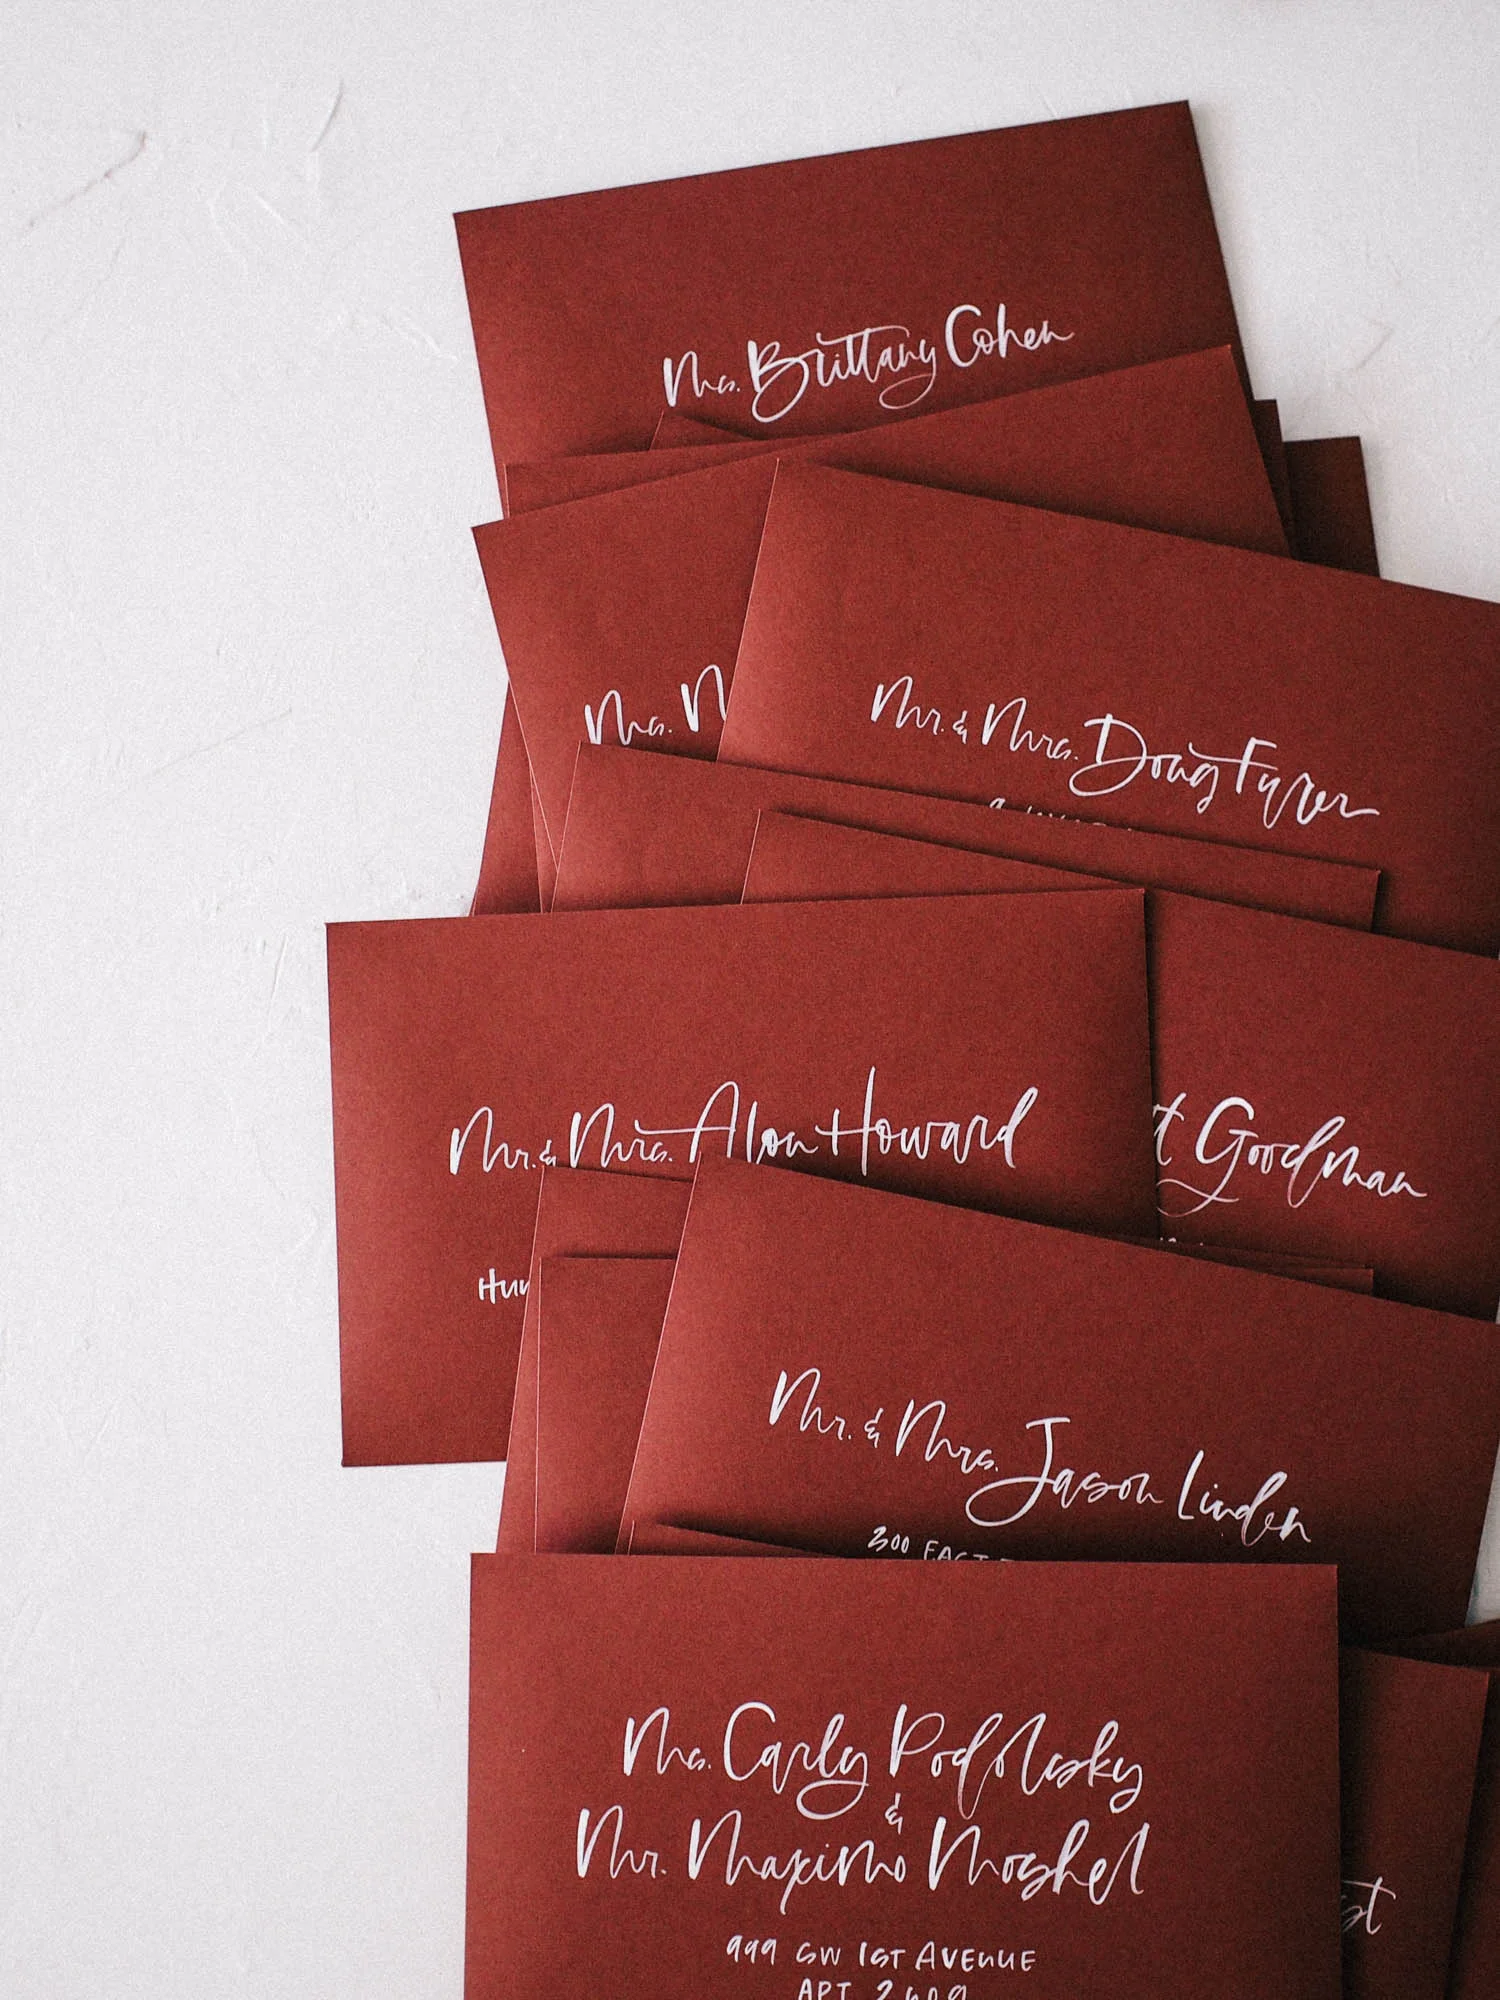 Ms. Brittany Cohen
Ms.
Mr. & Mrs. Doug Furer
Mr. & Mrs. Alon Howard
Goodman
Mr. & Mrs. Jason Linden
300 EAST
Ms. Carly Podolsky
&
Mr. Maximo Moshel
999 SW 1ST AVENUE
APT 2609